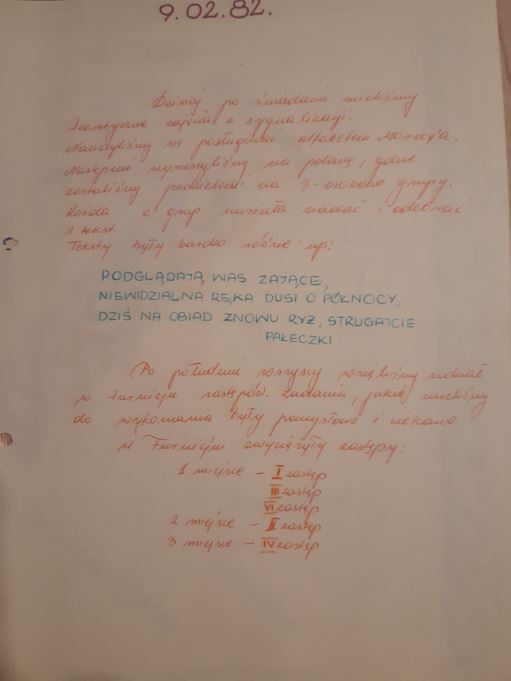 9.02.82.
Dzisiaj po śniadaniu mieliśmy
teoretyczne zajęcia z sygnalizacji.
Nauczyliśmy się posługiwać alfabetem Morse'a.
Następnie wyruszyliśmy na polanę, gdzie
zostaliśmy podzieleni na 3-osobowe grupy.
Każda z grup musiała nadać i odebrać
1 tekst.
Teksty były bardzo różne np:
PODGLĄDAJĄ WAS ZAJĄCE,
NIEWIDZIALNA RĘKA DUSI O PÓŁNOCY,
DZIŚ NA OBIAD ZNOWU RYŻ, STRUGAJCIE
PAŁECZKI.
Po południu wszyscy wzięliśmy udział
w turnieju zastępów. Zadania, jakie mieliśmy
do wykonania były pomysłowe i ciekawe
W Turnieju zwyciężyły zastępy:
1 miejsce - I zastęp
III zastęp
VI zastęp
2 miejsce - II zastęp
3 miejsce - IV zastęp